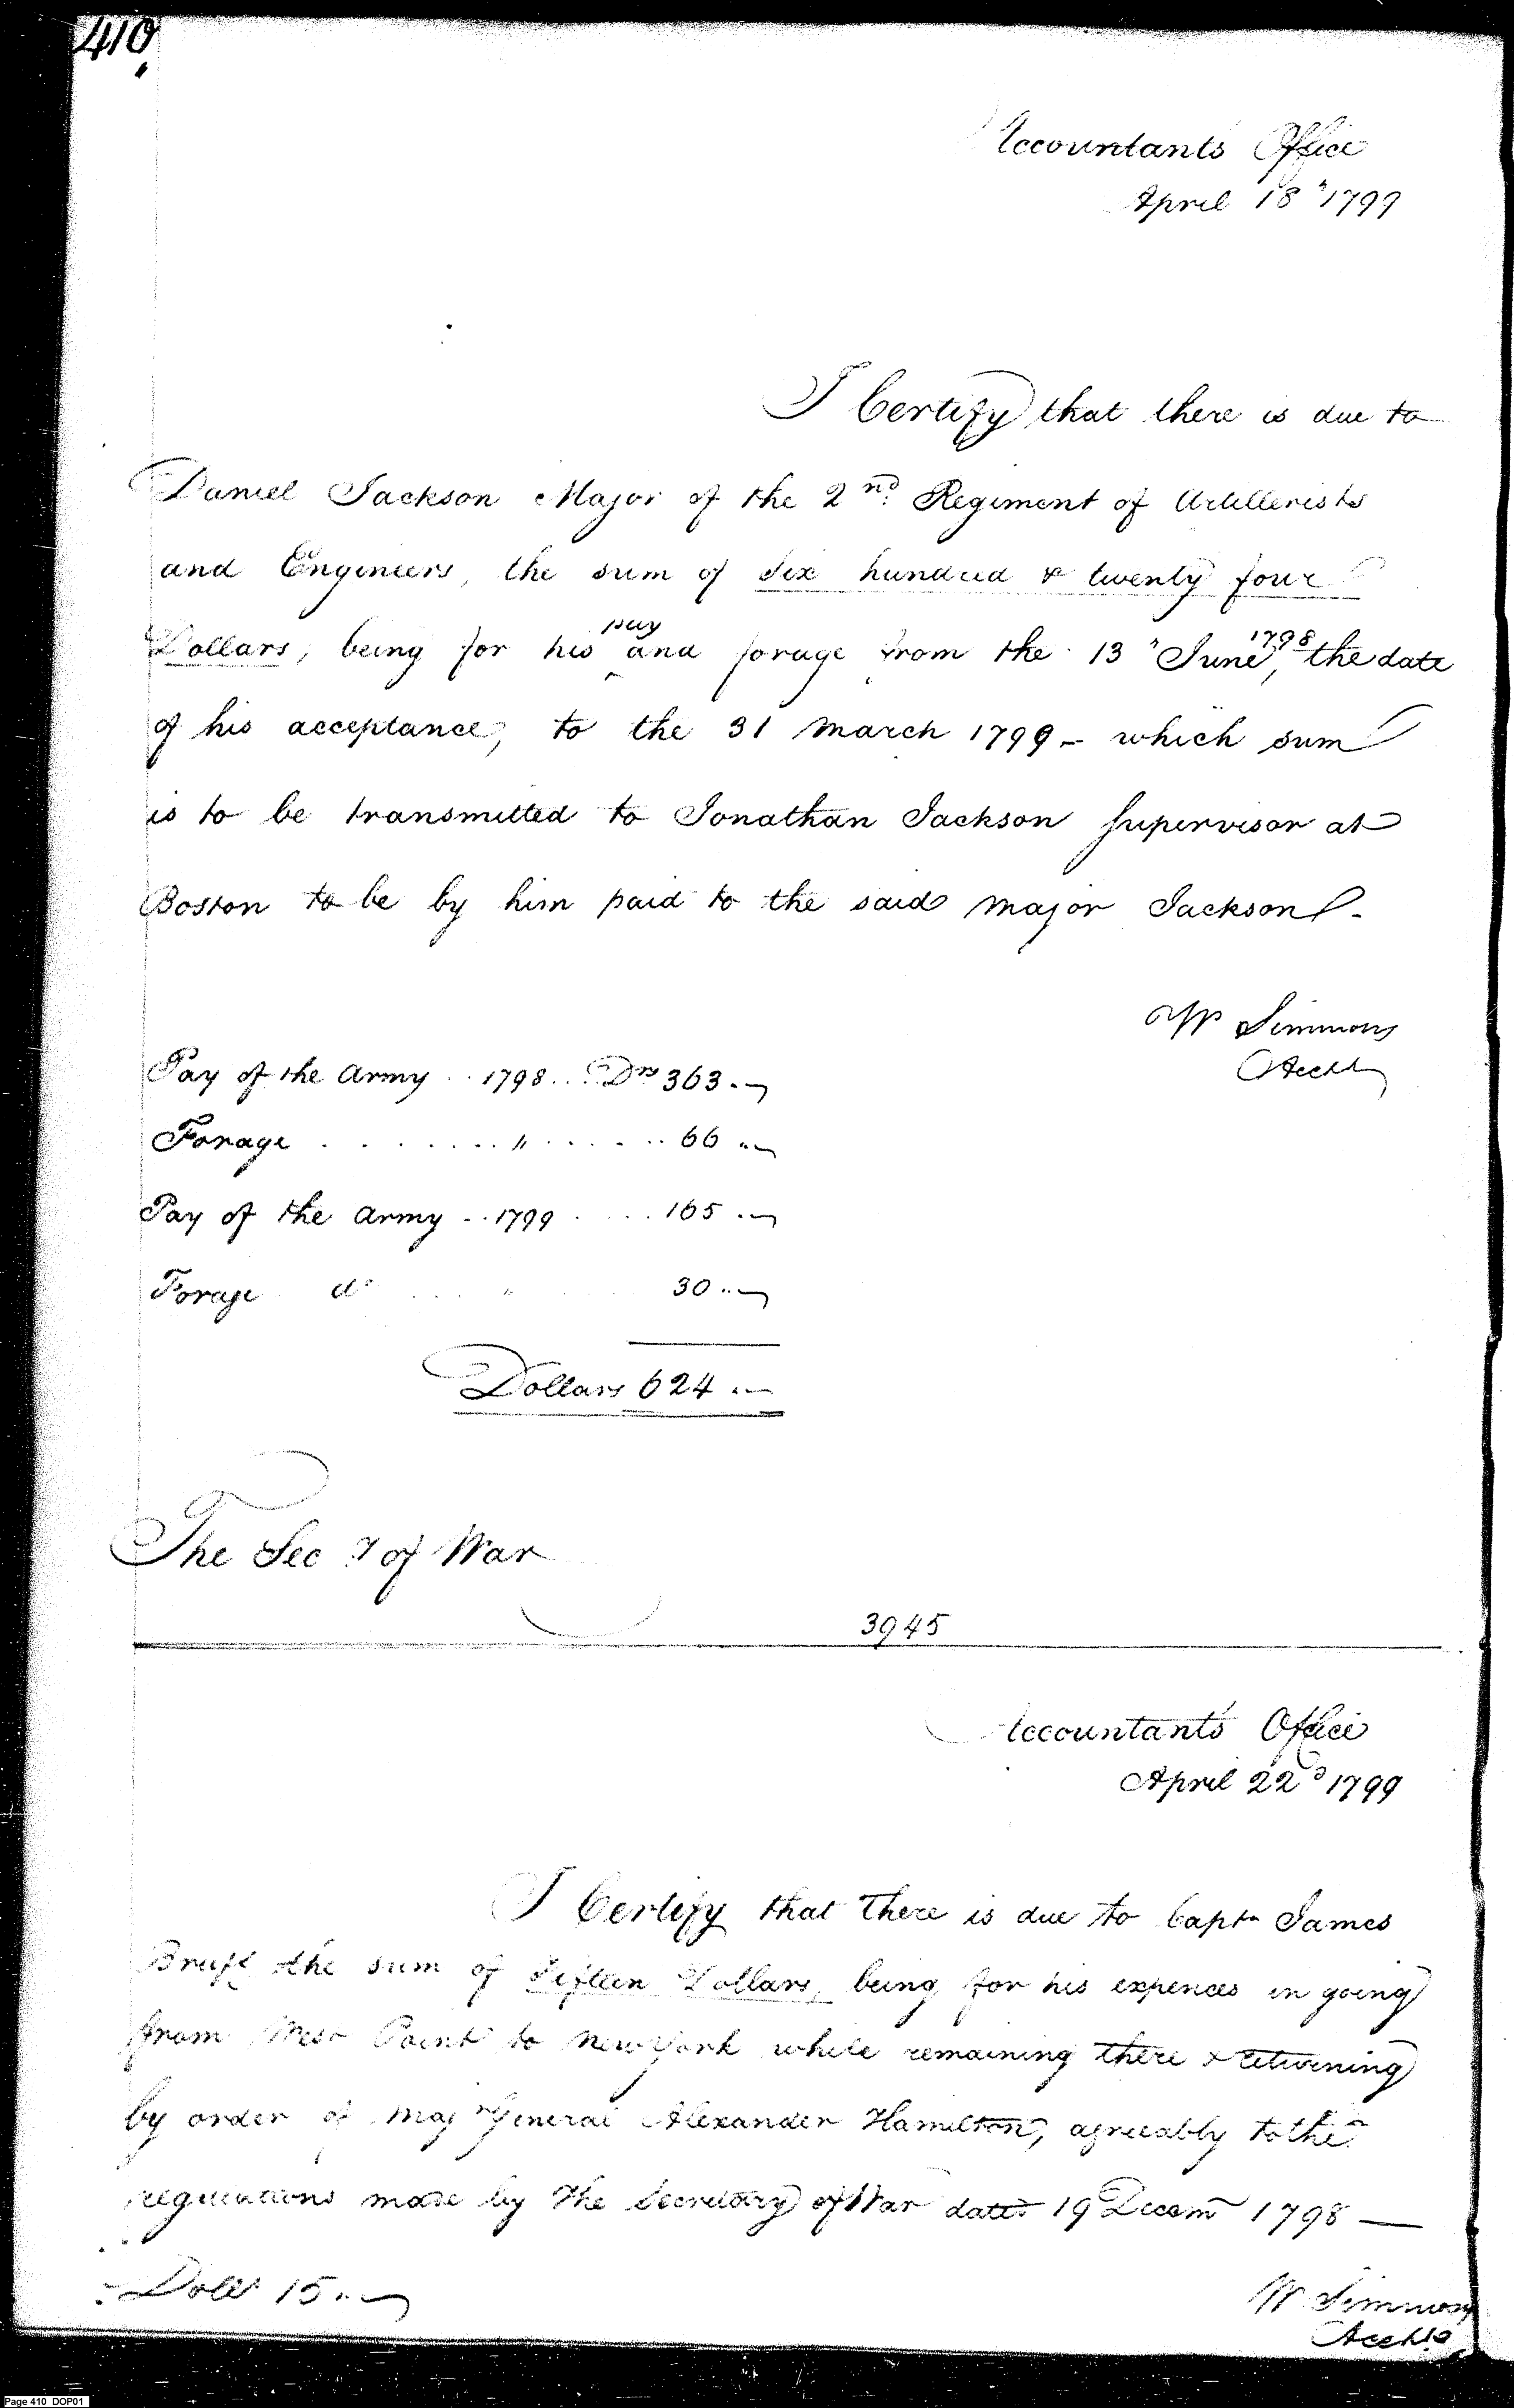 410
Accountants Office
April 18" 1799
I Certify that there is due to
Daniel Jackson Major of the 2nd Regiment of Artillerists
and Engineers, the sum of Six hundred & twenty four
pay 1798
Dollars, being for his ^ and forage from the 13" June, the date
of his acceptance, to the 31 March 1799 - which sum
is to be transmitted to Jonathan Jackson Supervisor at
Boston to be by him paid to the said Major Jackson -
Wm Simmons
Acctt
Pay of the Army .. 1798 ... Drs 363 .
Forage . . . . . . . " . . . . . . 66 "
Pay of the Army .. 1799 . . . . 165 .
Forage do . . . " 30 "
Dollars 624 .
The Secy of War
3945
Accountants Office
April 22d 1799
I Certify that there is due to Captn James
Bruff the sum of Fifteen Dollars, being for his expences in going
from West Point to New York while remaining there & returning
by order of Majr General Alexander Hamilton, agreeably to the
regulations made by the Secretary of War dated 19 Decem 1798 —
Dolls 15 .
W Simmons
Acctt
Page 410 DOP01